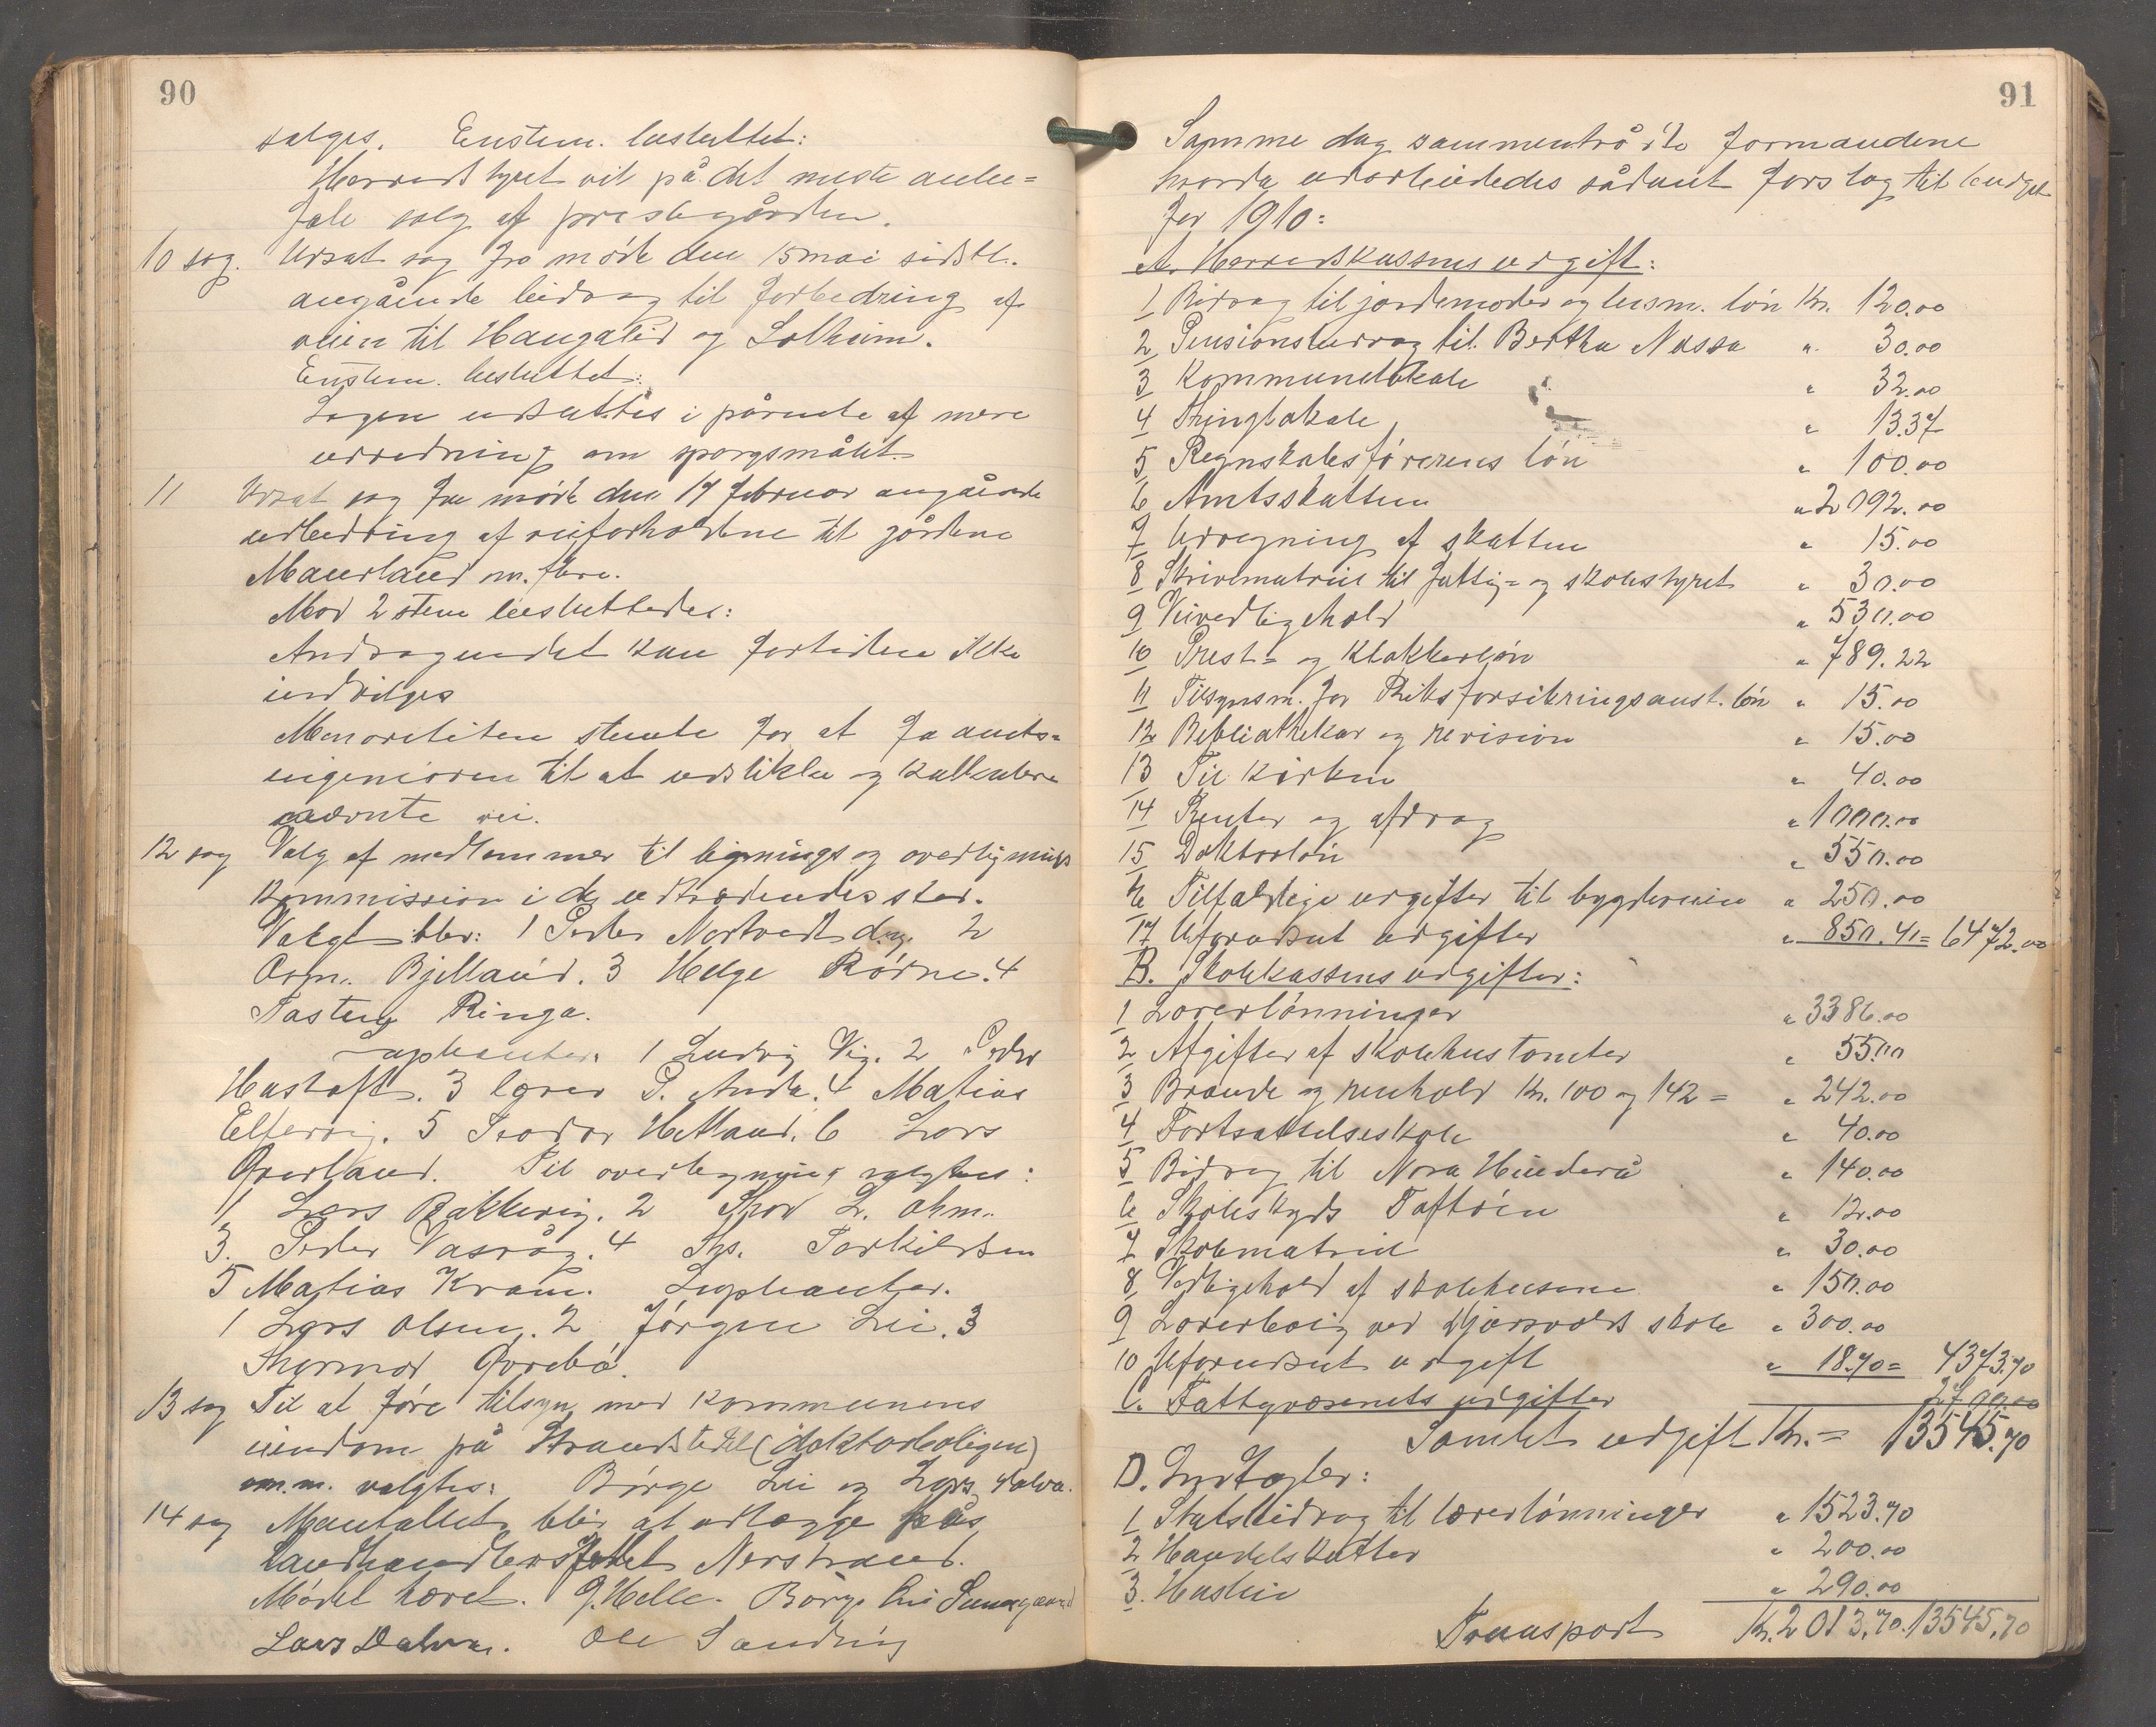 90
salges. Enstem. besluttet:
Herredstyret vil på det meste anbe=
fale salg af prestegården.
10 sag. Udsat sag fra møde den 15 mai sidstl.
angående bidrag til forbedring af
veien til Haugalid og Solheim.
Enstem. besluttet:
Sagen udsættes i påvente af mere
udredning om sporgsmålet.
11 Udsat sag fra møde den 17 februar angående
udbedring af veiforholdene til gårdene
Maurland m. flere.
Mod 2 stem besluttedes:
Andragendet kan fortiden ikke
indvilges
Menoriteten stemte for at fa amts=
ingeniøren til at udstikke og kalkulere
nævnte vei.
12 sag Valg af medlemmer til lignings og overlignings
kommission i de udtrædendes sted.
Valgt blev: 1 Peder Nortvedt d.y. 2
Osm. Bjelland. 3 Helge Rødne. 4
Tasten Ringa.
Suplianter: 1 Ludvig Vig. 2 Peder
Hastaft. 3 lærer P. Anda. 4 Matias
Elfervig. 5 Teodor Hetland. 6 Lars
Øverland. Til overligning valgtes:
1 Lars Bakkevig. 2 Thor L. Ohm.
3. Peder Vasvåg. 4 Sjs. Torkildsen
5 Matias Kram. Suplianter.
1 Lars Olsen. 2 Jørgen Lei. 3
Thormod Gorebø.
13 sag Til at føre tilsyn med kommunens
eiendom på Strandstedet (doktorboligen)
m. m. valgtes: Børge Lei og Lars Dalva.
14 sag Mantallet blir at udlægge hos
Landhandlers Nerstrand.
Mødet hævet. G. Helle. Børge Lei
Lars Dalva. Ole Sandvig
91
Samme dag sammentrådte formandene
hvorda udarbeidedes sådant forslag til budget
for 1910:
A. Herredskassens udgift:
1 Bidrag til jordemoder og husm. løn Kr. 120.00
2 Pensionsbidrag til Bertha Nessa " 30.00
3 Kommunelokale " 32.00
4 Thinglokale " 13.37
5 Regnskabsførerens løn " 100.00
6 Amtsskatten " 2092.00
7 Udregning af skatten " 15.00
8 Skrivematriel til fattig= og skolestyret " 30.00
9 Veivedligehold " 530.00
10 Prest= og klokkerløn " 789.22
11 Tilsynsm. for Riksforsikringsanst. løn " 15.00
12 Bebliothekar og revision " 15.00
13 Til kirken " 40.00
14 Renter og afdrag " 1000.00
15 Doktorløn " 550.00
16 Tilfældige udgifter til bygdeveie " 250.00
17 Uforudset udgifter " 850.41= 6472.00
B. Skolekassens udgifter:
1 Lærerlønninger " 3386.00
2 Afgifter af skolehustomter " 55.00
3 Brænde og renhold Kr. 100 og 142 = " 242.00
4 Fortsættelseskole " 40.00
5 Bidrag til Nora Hinderå " 140.00
6 Skoleskyds Toftøen " 12.00
7 Skolematriel " 30.00
8 Vedligehold af skolehusene " 150.00
9 Lærerbolig ved Hjorsvolds skole " 300.00
10 Uforudset udgift " 18.70= 4373.70
C. Fattigvæsenets udgifter 2700.00
Samlet udgift Kr. = 13545.70
D. Indtægter:
1 Statsbidrag til lærerlønninger " 1523.70
2 Handelskatter " 200.00
3. Husleie " 290.00
Transport Kr. 2013.70. 13545.70